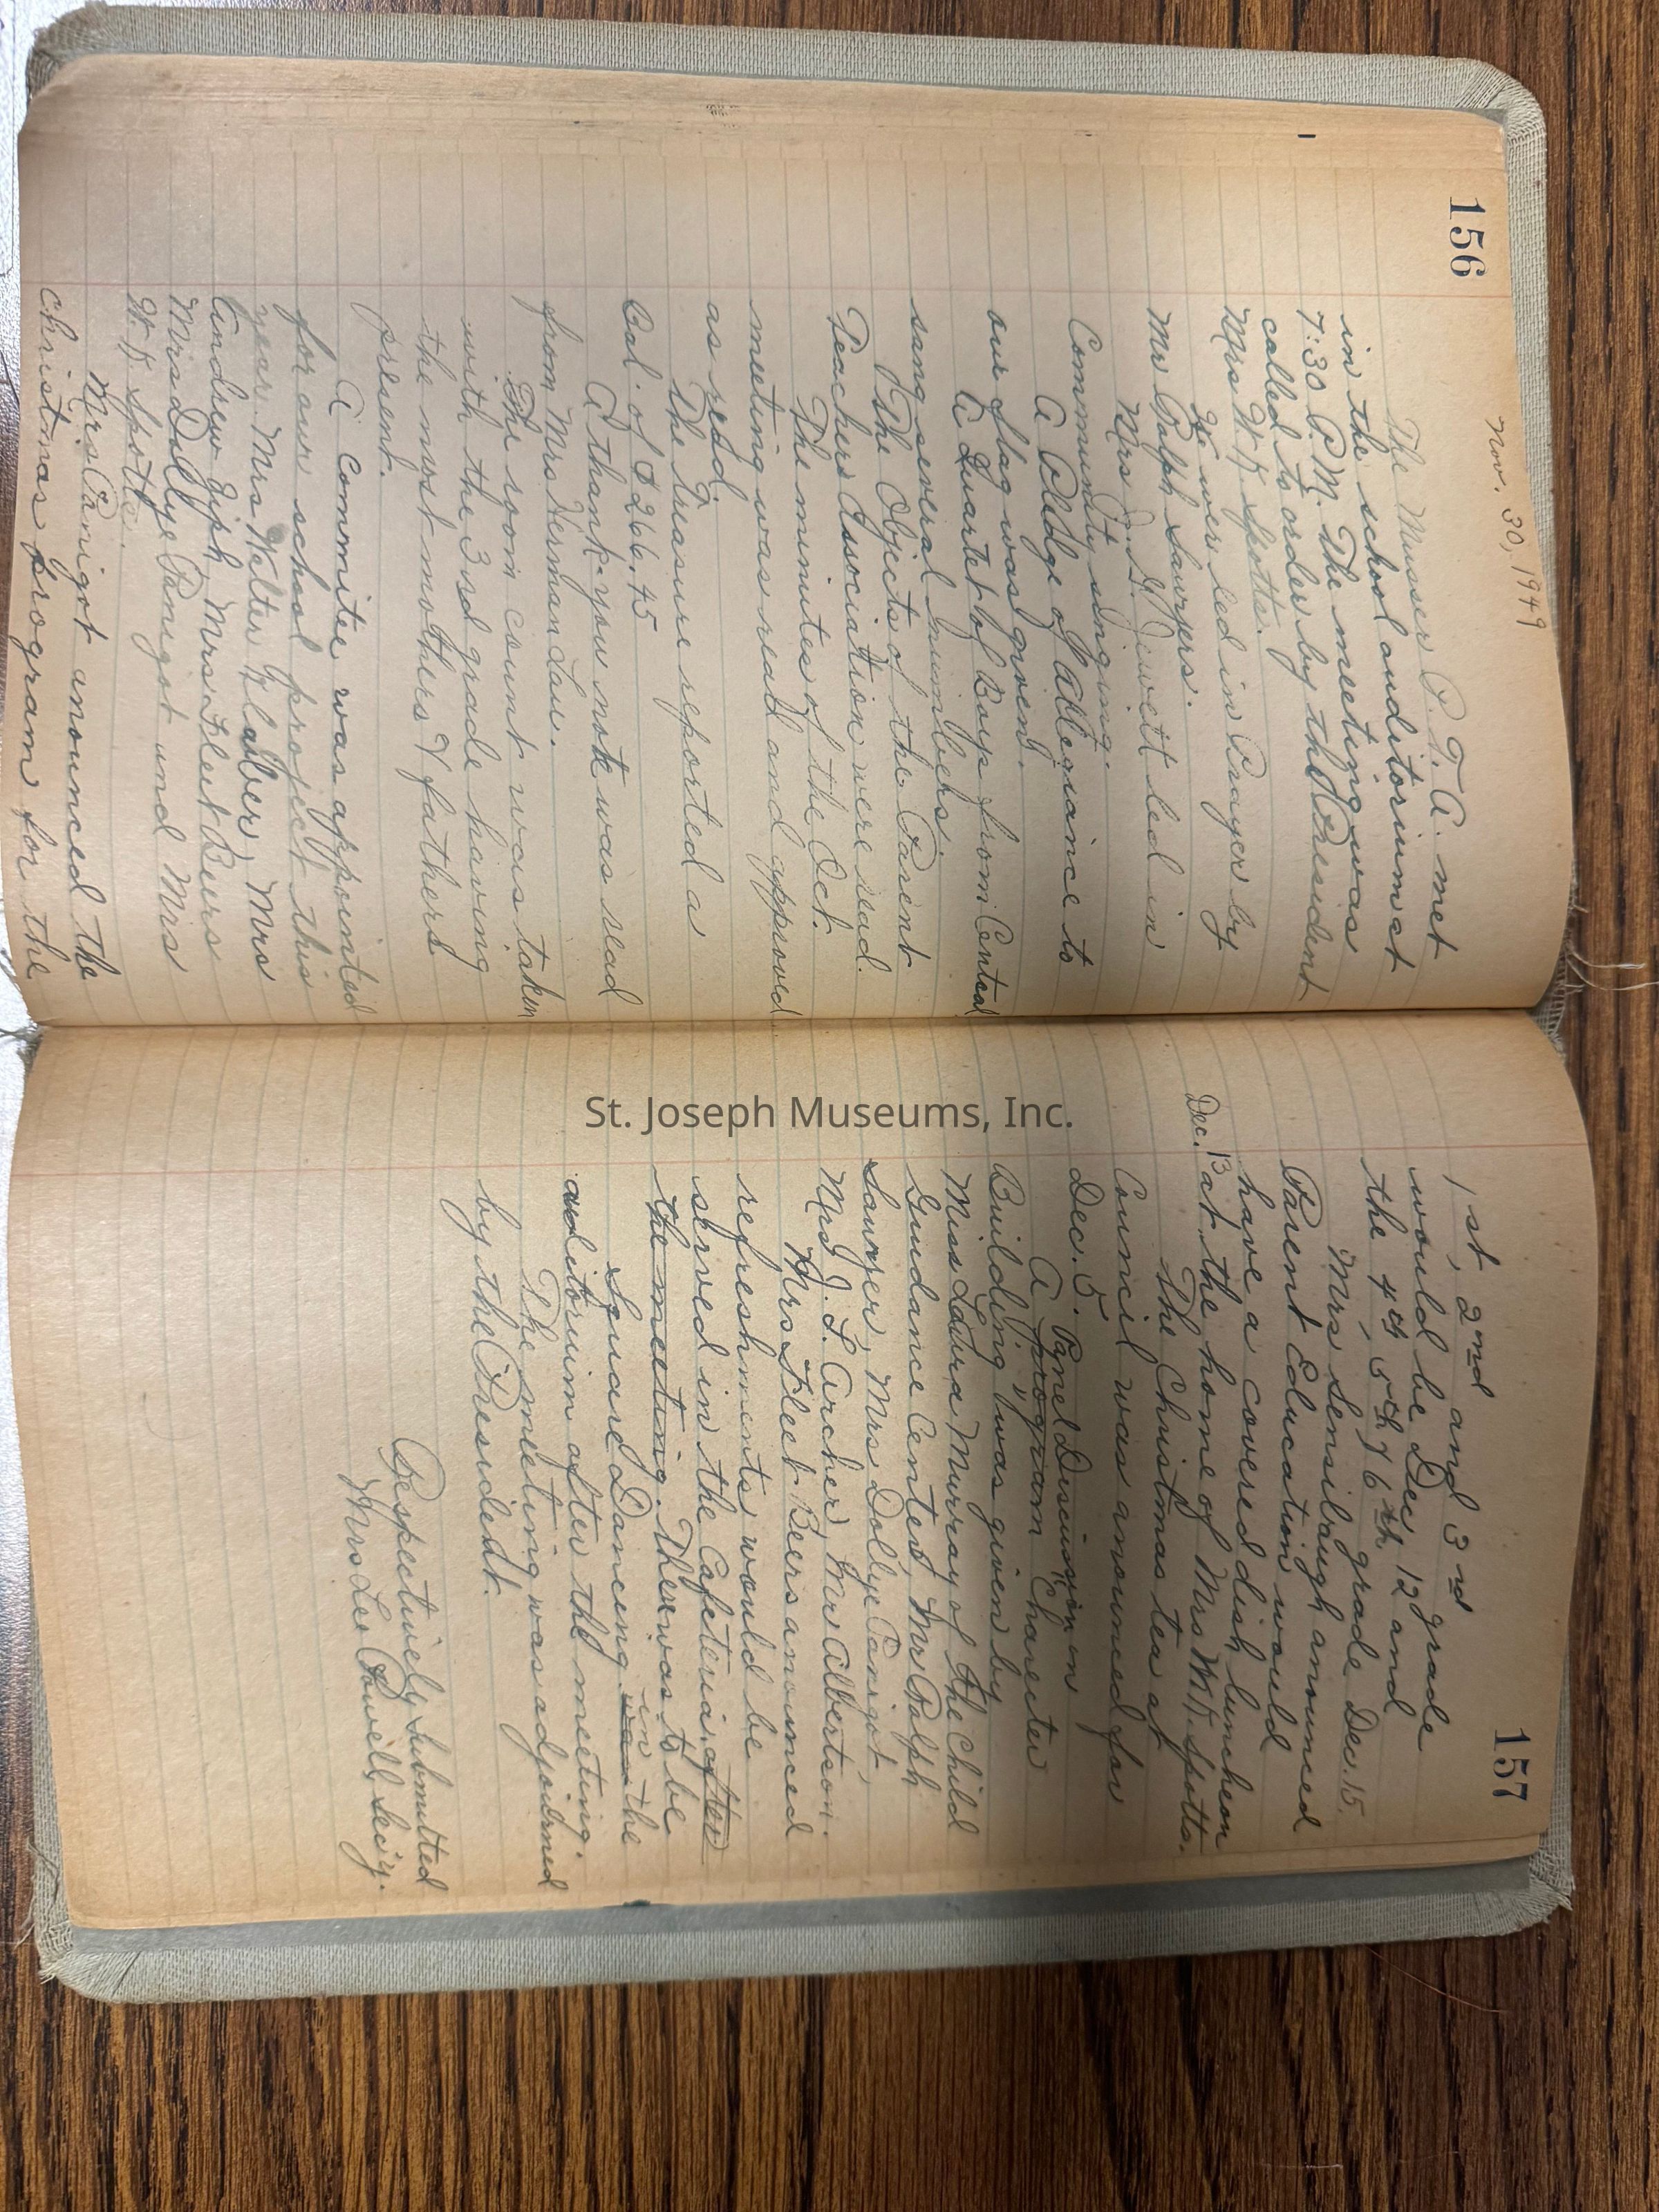 156
Nov. 30, 1949
The Musser P. T. A. met
in the school auditorium at
7:30 P.M. The meeting was
called to order by the President
Mrs W. K. Spotts.
We were led in Prayer by
Mr Ralph Sawyers.
Mrs Jewett led in
Community singing.
A Pledge of Allegiance to
our flag was given.
A Quartet of Boys from Central
sang several numbers.
The Objects of the Parent
Teachers Association were read.
The minutes of the Oct.
meeting was read and approved
as red.
The treasure reported a
Bal. of $266.45
A thank-you note was read
from Mrs Herman Lau.
The room count was taken
with the 3rd grade having
the most mothers & fathers
present.
A committee was appointed
for our school project this
year. Mrs Walter Glauber, Mrs
Andrew Ziph, Mrs Fleet Beers
Mrs Dollye Panigot and Mrs
W. K. Spotts.
Mrs Panigot anounced the
christmas program for the
157
1st, 2nd and 3rd grade
would be Dec, 12 and
the 4th, 5th & 6th grade Dec. 15.
Mrs Sensibaugh announced
Parent Education would
have a covered dish luncheon
Dec. 13 at the home of Mrs W.K. Spotts.
The Christmas tea at
Council was anounced for
Dec. 5.
Panel Discussion on
A program Charecter
Building" was given by
Miss Laura Murray of the Child
Guidance Center, Mr Ralph
Sawyer, Mrs Dollye Panigot,
Mrs J. L. Archer, Mrs Albertson.
Mrs Fleet Beers anounced
refreshments would be
served in the Cafeteria after
the meeting. There was to be
Square Dancing was in the
auditorium after the meeting.
The meeting was adjourned
by the President.
Respectively Submitted
Mrs Lee Powell, Sec'y.
St. Joseph Museums, Inc.